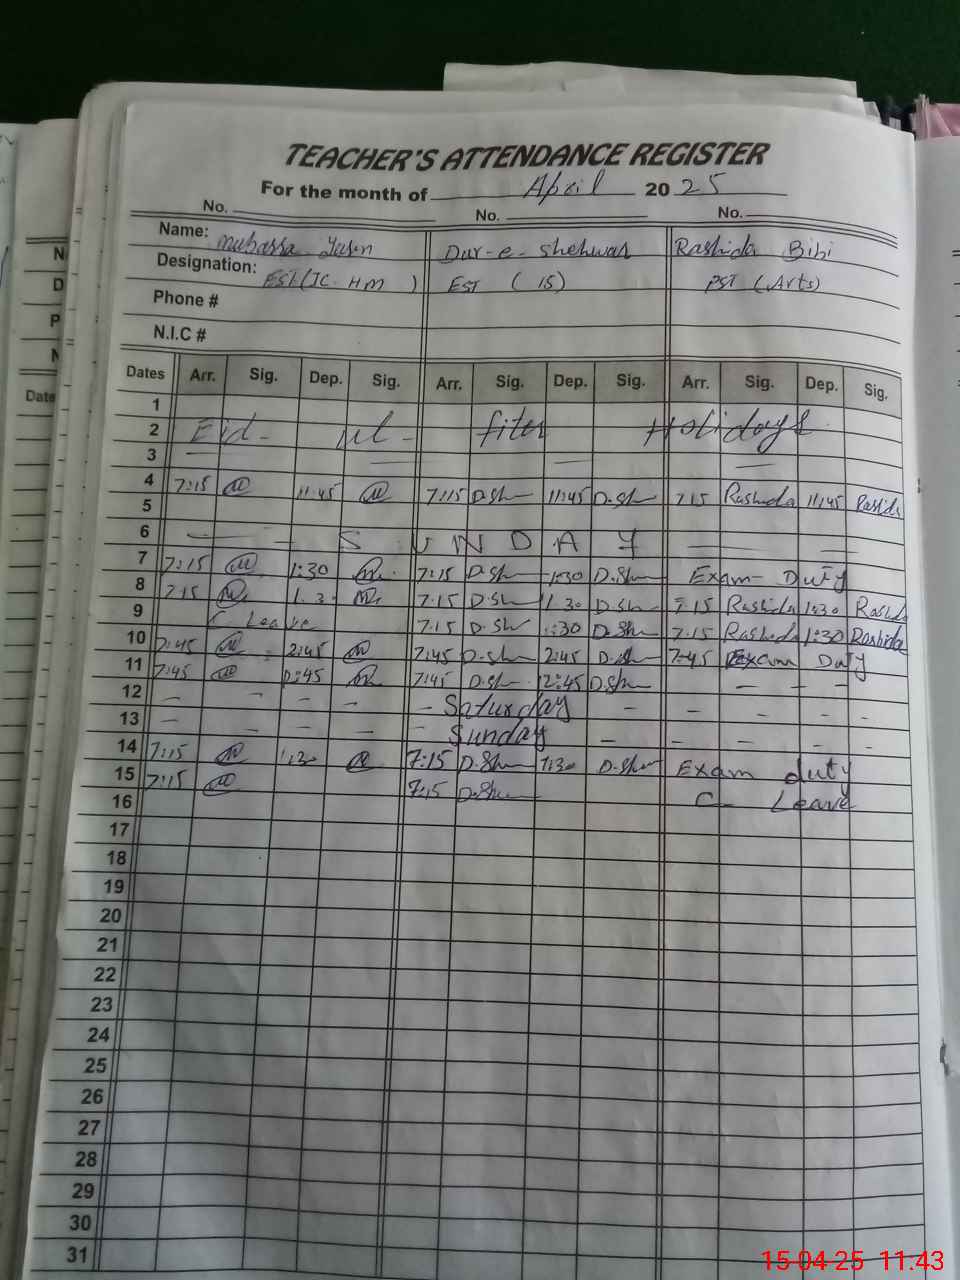 TEACHER'S ATTENDANCE REGISTER
For the month of April 2025
No. No. No.
Name: Mubassa Yasin Dur-e-Shehwar Rashida Bibi
Designation: EST (IC. HM) EST (IS) PST (Arts)
Phone #
N.I.C #
Dates Arr. Sig. Dep. Sig. Arr. Sig. Dep. Sig. Arr. Sig. Dep. Sig.
1
2 Eid - ul - fiter Holidays
3
4 7:15 11:45 7:15 D.Sh 11:45 D.Sh 7:15 Rashida 11:45 Rashida
5
6 S U N D A Y
7 7:15 1:30 7:15 D.Sh 1:30 D.Sh Exam - Duty
8 7:15 1:30 7:15 D.Sh 1:30 D.Sh 7:15 Rashida 1:30 Rashida
9 C Leave 7:15 D.Sh 1:30 D.Sh 7:15 Rashida 1:30 Rashida
10 7:45 2:45 7:45 D.Sh 2:45 D.Sh 7:45 Exam Duty
11 7:45 12:45 7:45 D.Sh 12:45 D.Sh
12 - - - - - Saturday - - - - -
13 - - - - - Sunday - - - - -
14 7:15 1:30 7:15 D.Sh 1:30 D.Sh Exam duty
15 7:15 7:15 D.Sh C- Leave
16
17
18
19
20
21
22
23
24
25
26
27
28
29
30
31
15 04 25 11.43